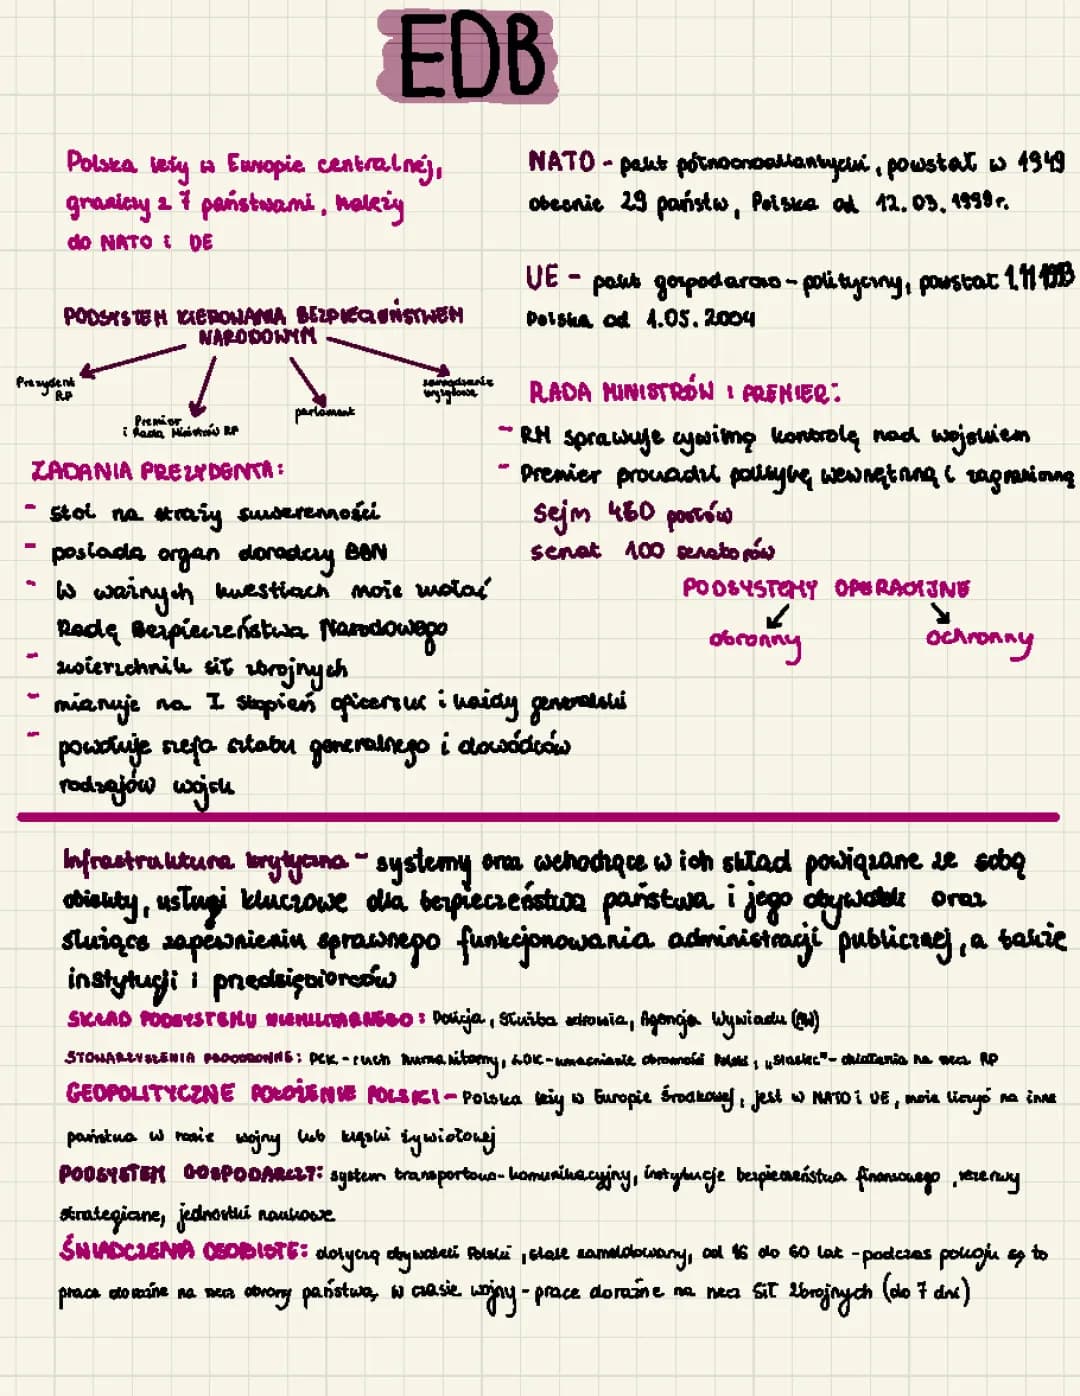 EDB
Polska leży w Europie centralnej,
graniczy z 7 państwami, należy
do NATO i UE
NATO - pakt północnoatlantycki, powstał w 1949
obecnie 29 państw, Polska od 12.03.1999r.
UE - pakt gospodarczo-polityczny, powstał 1.11.1993
Polska od 1.05.2004
PODSYSTEM KIEROWANIA BEZPIECZEŃSTWEM
NARODOWYM
Prezydent
RP
Premier
i Rada Ministrów RP
parlament
ZADANIA PREZYDENTA:
- stoi na straży suwerenności
- posiada organ doradczy BBN
- w ważnych kwestiach może wołać
Radę Bezpieczeństwa Narodowego
- zwierzchnik sił zbrojnych
- mianuje na I stopień oficerski i każdy generalski
- powołuje szefa sztabu generalnego i dowódców
rodzajów wojsk
RADA MINISTRÓW I PREMIER:
- RM sprawuje cywilną kontrolę nad wojskiem
- Premier prowadzi politykę wewnętrzną i zagraniczną
sejm 460 posłów
senat 100 senatorów
PODSYSTEMY OPERACYJNE
obronny
ochronny
Infrastruktura krytyczna - systemy oraz wchodzące w ich skład powiązane ze sobą
obiekty, usługi kluczowe dla bezpieczeństwa państwa i jego obywateli oraz
służące zapewnieniu sprawnego funkcjonowania administracji publicznej, a także
instytucji i przedsiębiorców
SKŁAD PODSYSTEMU NIEMILITARNEGO: Policja, Służba zdrowia, Agencja Wywiadu (AW)
STOWARZYSZENIA PROOBRONNE: PCK - ruch humanitarny, LOK - umacnianie obronności Polski, "Strzelec" - działania na rzecz RP
GEOPOLITYCZNE POŁOŻENIE POLSKI - Polska leży w Europie Środkowej, jest w NATO i UE, może liczyć na inne
państwa w razie wojny lub klęski żywiołowej
PODSYSTEM GOSPODARCZY: system transportowo-komunikacyjny, instytucje bezpieczeństwa finansowego, rezerwy
strategiczne, jednostki naukowe
ŚWIADCZENIA OSOBISTE: dotyczą obywateli Polski, stałe zameldowany, od 16 do 60 lat - podczas pokoju są to
prace doraźne na rzecz obrony państwa, w czasie wojny - prace doraźne na rzecz Sił Zbrojnych (do 7 dni)